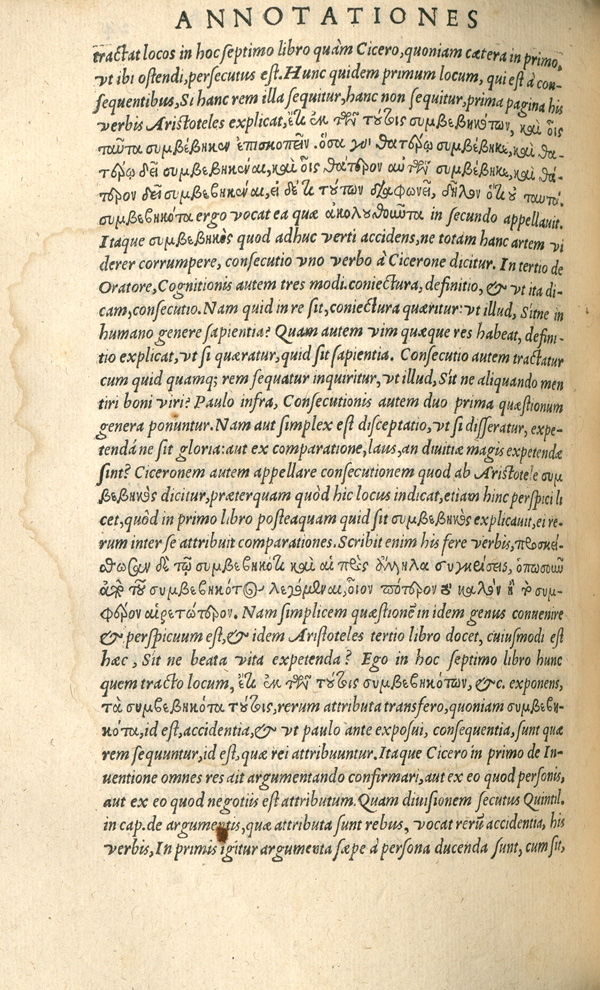 ANNOTATIONES
tractat locos in hoc septimo libro quàm Cicero, quoniam cætera in primo,
vt ibi ostendi, persecutus est. Hunc quidem primum locum, qui est à con-
sequentibus, Si hanc rem illa sequitur, hanc non sequitur, prima pagina his
verbis Aristoteles explicat, ἔτι ἐκ τῶν τούτοις συμβεβηκότων, καὶ οἷς
ταῦτα συμβέβηκεν ἐπισκοπεῖν. ὅσα γὰρ θατέρῳ συμβέβηκε, καὶ θα-
τέρῳ δεῖ συμβεβηκέναι, καὶ οἷς θάτερον αὐτῶν συμβέβηκε, καὶ θά-
τερον δεῖ συμβεβηκέναι, εἰ δέ τι τούτων διαφωνεῖ, δῆλον ὅτι οὐ ταυτά.
συμβεβηκότα ergo vocat ea quæ ἀκολουθοῦντα in secundo appellauit.
Itaque συμβεβηκὸς quod adhuc verti accidens, ne totam hanc artem vi
derer corrumpere, consecutio vno verbo à Cicerone dicitur. In tertio de
Oratore, Cognitionis autem tres modi. coniectura, definitio, & vt ita di-
cam, consecutio. Nam quid in re sit, coniectura quæritur: vt illud, Sitne in
humano genere sapientia? Quam autem vim quæque res habeat, defini-
tio explicat, vt si quæratur, quid sit sapientia. Consecutio autem tractatur
cum quid quamq; rem sequatur inquiritur, vt illud, Sit ne aliquando men
tiri boni viri? Paulo infra, Consecutionis autem duo prima quæstionum
genera ponuntur. Nam aut simplex est disceptatio, vt si disseratur, expe-
tendáne sit gloria: aut ex comparatione, laus, an diuitiæ magis expetendæ
sint? Ciceronem autem appellare consecutionem quod ab Aristotele συμ
βεβηκὸς dicitur, præterquam quòd hic locus indicat, etiam hinc perspici li
cet, quòd in primo libro posteaquam quid sit συμβεβηκὸς explicauit, ei re-
rum inter se attribuit comparationes. Scribit enim his fere verbis, προσκεί-
θωσαν δὲ τῷ συμβεβηκότι καὶ αἱ πρὸς ἄλληλα συγκρίσεις, ὁπωσοῦν
ἀπὸ τοῦ συμβεβηκότος λεγόμεναι, οἷον πότερον τὸ καλὸν ἢ τὸ συμ-
φέρον αἱρετώτερον. Nam simplicem quæstionē in idem genus conuenire
& perspicuum est, & idem Aristoteles tertio libro docet, cuiusmodi est
hæc, Sit ne beata vita expetenda? Ego in hoc septimo libro hunc
quem tracto locum, ἔτι ἐκ τῶν τούτοις συμβεβηκότων, &c. exponens,
τὰ συμβεβηκότα τούτοις, rerum attributa transfero, quoniam συμβεβη-
κότα, id est, accidentia, & vt paulo ante exposui, consequentia, sunt quæ
rem sequuntur, id est, quæ rei attribuuntur. Itaque Cicero in primo de In-
uentione omnes res ait argumentando confirmari, aut ex eo quod personis,
aut ex eo quod negotiis est attributum. Quam diuisionem secutus Quintil.
in cap. de argumentis, quæ attributa sunt rebus, vocat rerū accidentia, his
verbis, In primis igitur argumenta sæpe à persona ducenda sunt, cum sit,